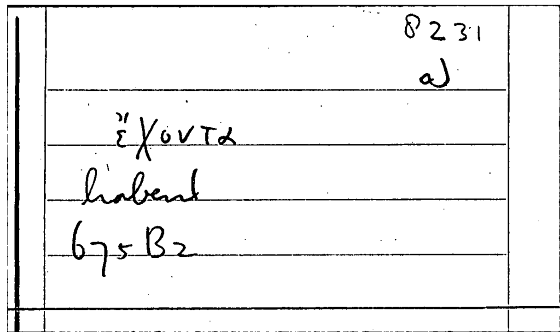 8231
a)
ἔχοντα
habent
675B2